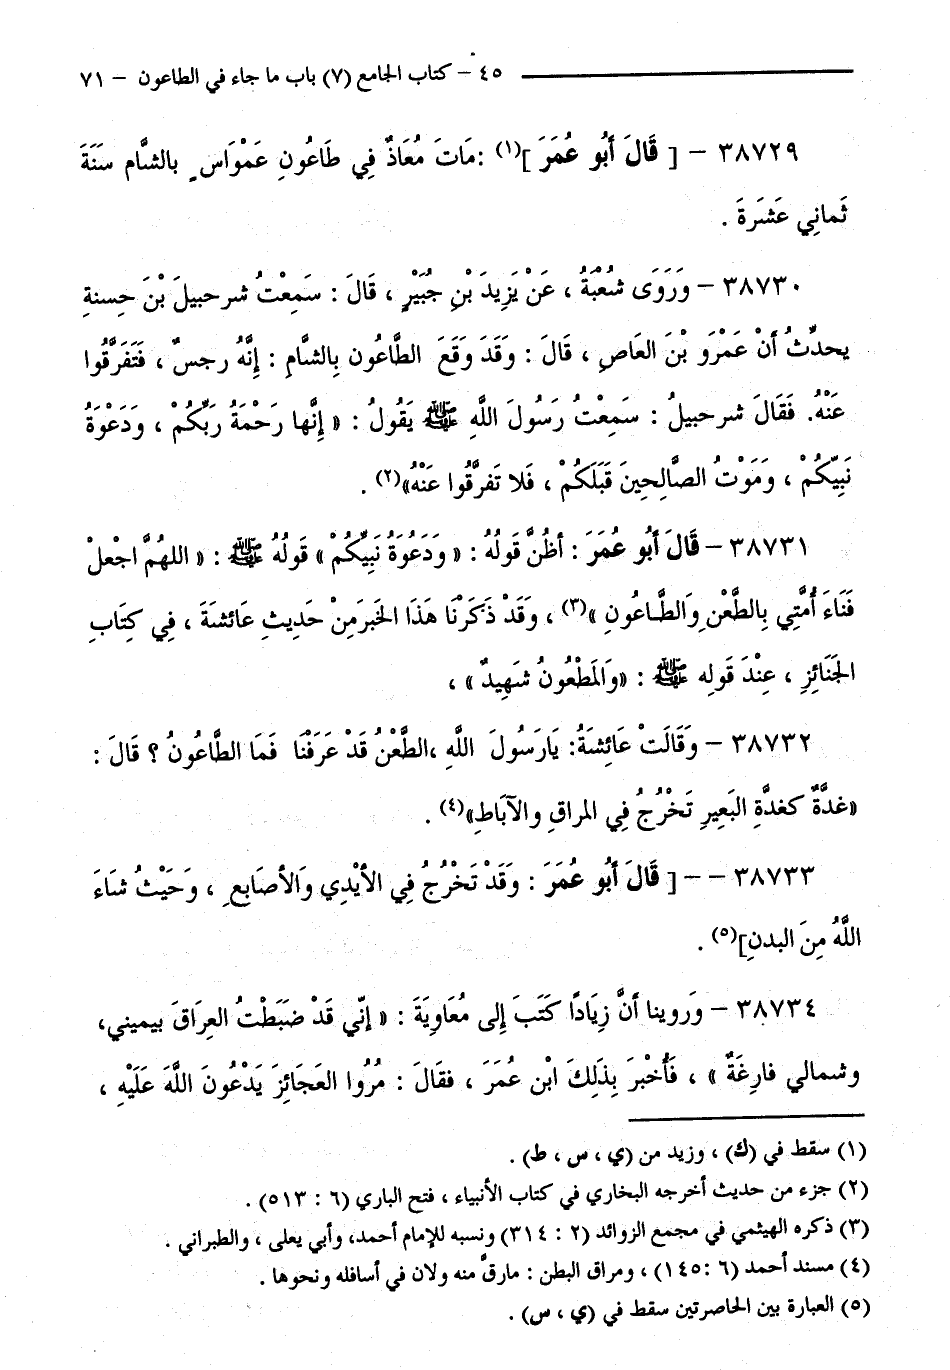 ٤٥ – كتاب الجامع (٧) باب ما جاء في الطاعون – ٧١
٣٨٧٢٩ – [ قَالَ أَبُو عُمَرَ ](١) :مَاتَ مُعَاذٌ فِي طَاعُونِ عَمْوَاسٍ بالشَّام سَنَةَ
ثَمانِي عَشَرَةَ .
٣٨٧٣٠ – وَرَوَى شُعْبَةُ ، عَنْ يَزِيدَ بْنِ جُبَيْرٍ ، قَالَ : سَمِعْتُ شرحبيلَ بْنَ حِسنةِ
يحدِّثُ أَنْ عَمْرَو بْنَ العَاصِ ، قَالَ : وَقَدَ وَقَعَ الطَّاعُون بِالشَّامِ : إِنَّهُ رجسٌ ، فَتَفَرَّقُوا
عَنْهُ. فَقَالَ شرحبيلُ : سَمِعْتُ رَسُولَ اللَّهِ ﷺ يَقُولُ : « إِنَّها رَحْمَةُ رَبِّكُمْ ، وَدَعْوَةُ
نَبِيِّكُمْ ، وَمَوْتُ الصَّالِحِينَ قَبَلَكُمْ ، فَلا تَفرَّقُوا عَنْهُ»(٢) .
٣٨٧٣١ – قَالَ أَبُو عُمَرَ : أظُنَّ قَولُهُ : « وَدَعُوَةُ نَبِيِّكُمْ » قَولُهُ ﷺ : « اللهُمَّ اجْعلْ
فَنَاءَ أُمَّتِي بِالطَّعْنِ وَالطَّاعُونِ »(٣) ، وَقَدْ ذَكَرْنَا هَذَا الخَبرَ مِنْ حَدِيثِ عَائشَةَ ، فِي كِتَابِ
الجَنَائِزِ ، عِنْدَ قَولِه ﷺ : «وَالمَطْعُونُ شَهِيدٌ » ،
٣٨٧٣٢ – وَقَالَتْ عَائِشَةُ: يَارَسُولَ اللَّهِ ،الطَّعْنُ قَدْ عَرَفْنَا فَمَا الطَّاعُونُ ؟ قَالَ :
«غدَّةٌ كَغدَّةِ البَعِيرِ تَخْرُجُ فِي المراقِ والآبَاطِ»(٤) .
٣٨٧٣٣ – – [ قَالَ أَبُو عُمَرَ : وَقَدْ تَخْرُجُ فِي الأَيْدِي وَالأصَابِعِ ، وَحَيْثُ شَاءَ
اللَّهُ مِنَ البدنِ](٥) .
٣٨٧٣٤ – وَروينا أنَّ زِيَادًا كَتَبَ إِلى مُعَاوِيَةَ : « إنّي قَدْ ضَبَطْتُ العِرَاقَ بيميني،
وشمالي فارِغَةٌ » ، فَأُخْبرَ بِذَلِكَ ابْن عُمَرَ ، فقَالَ : مُرُوا العَجَائِزَ يَدْعُونَ اللَّهَ عَلَيْهِ ،
(١) سقط في (ك) ، وزيد من (ي ، س ، ط) .
(٢) جزء من حديث أخرجه البخاري في كتاب الأنبياء ، فتح الباري (٦ : ٥١٣) .
(٣) ذكره الهيثمي في مجمع الزوائد (٢ : ٣١٤) ونسبه للإمام أحمد، وأبي يعلى ، والطبراني .
(٤) مسند أحمد (٦ :١٤٥) ، ومراق البطن : مارقَّ منه ولان في أسافله ونحوها .
(٥) العبارة بين الحاصرتين سقط في (ي ، س) .